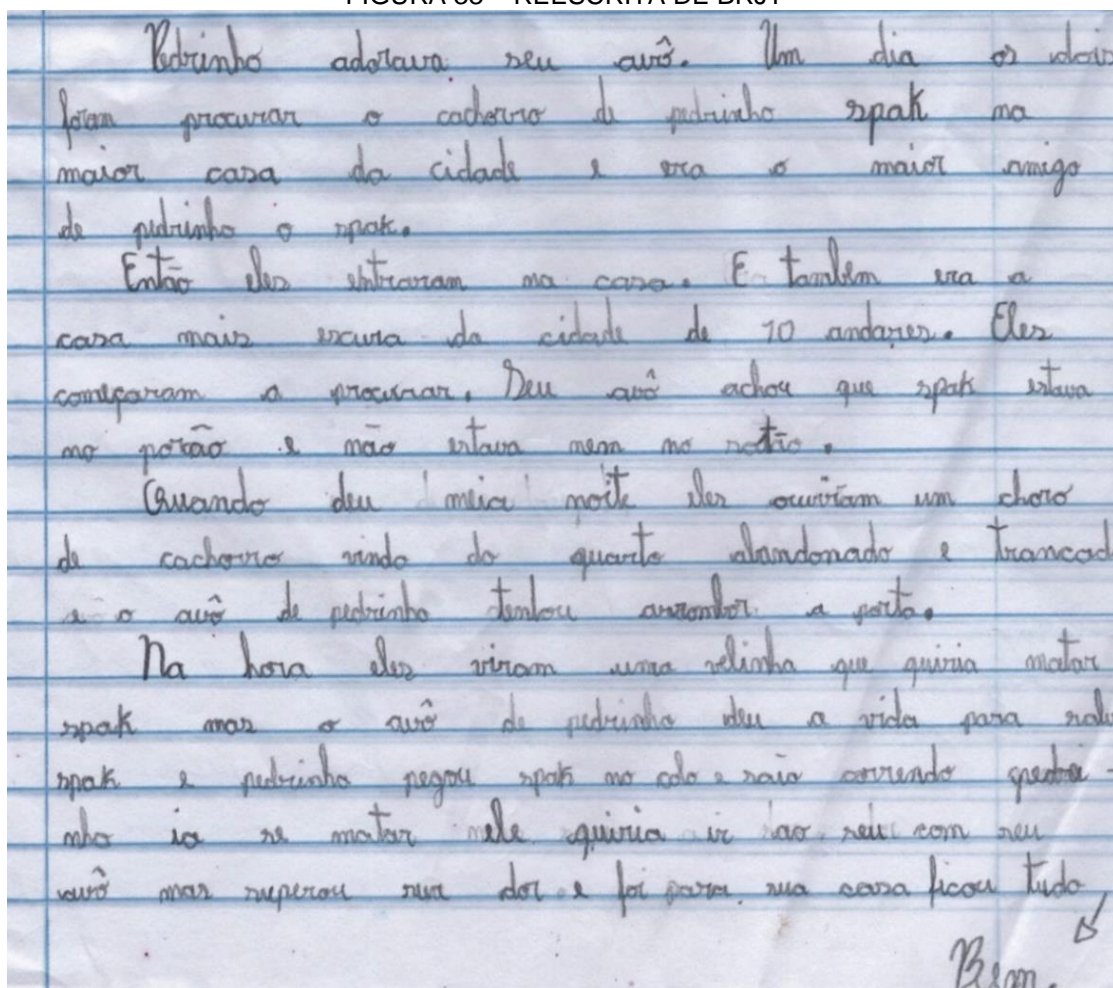 Pedrinho adorava seu avô. Um dia os dois
foram procurar o cachorro de pedrinho spak na
maior casa da cidade e era o maior amigo
de pedrinho o spak.
Então eles entraram na casa. E também era a
casa mais escura da cidade de 10 andares. Eles
começaram a procurar. Seu avô achou que spak estava
no porão e não estava nem no sotão.
Quando deu meia noite eles ouviram um choro
de cachorro vindo do quarto abandonado e trancad
e o avô de pedrinho tentou arrombar a porta.
Na hora eles viram uma velinha que quiria matar
spak mas o avô de pedrinho deu a vida para salv
spak e pedrinho pegou spak no colo e saio correndo
nho ia se matar quiria ir ao seu com seu
avô mas superou sua dor e foi para sua casa ficou tudo
Bem.